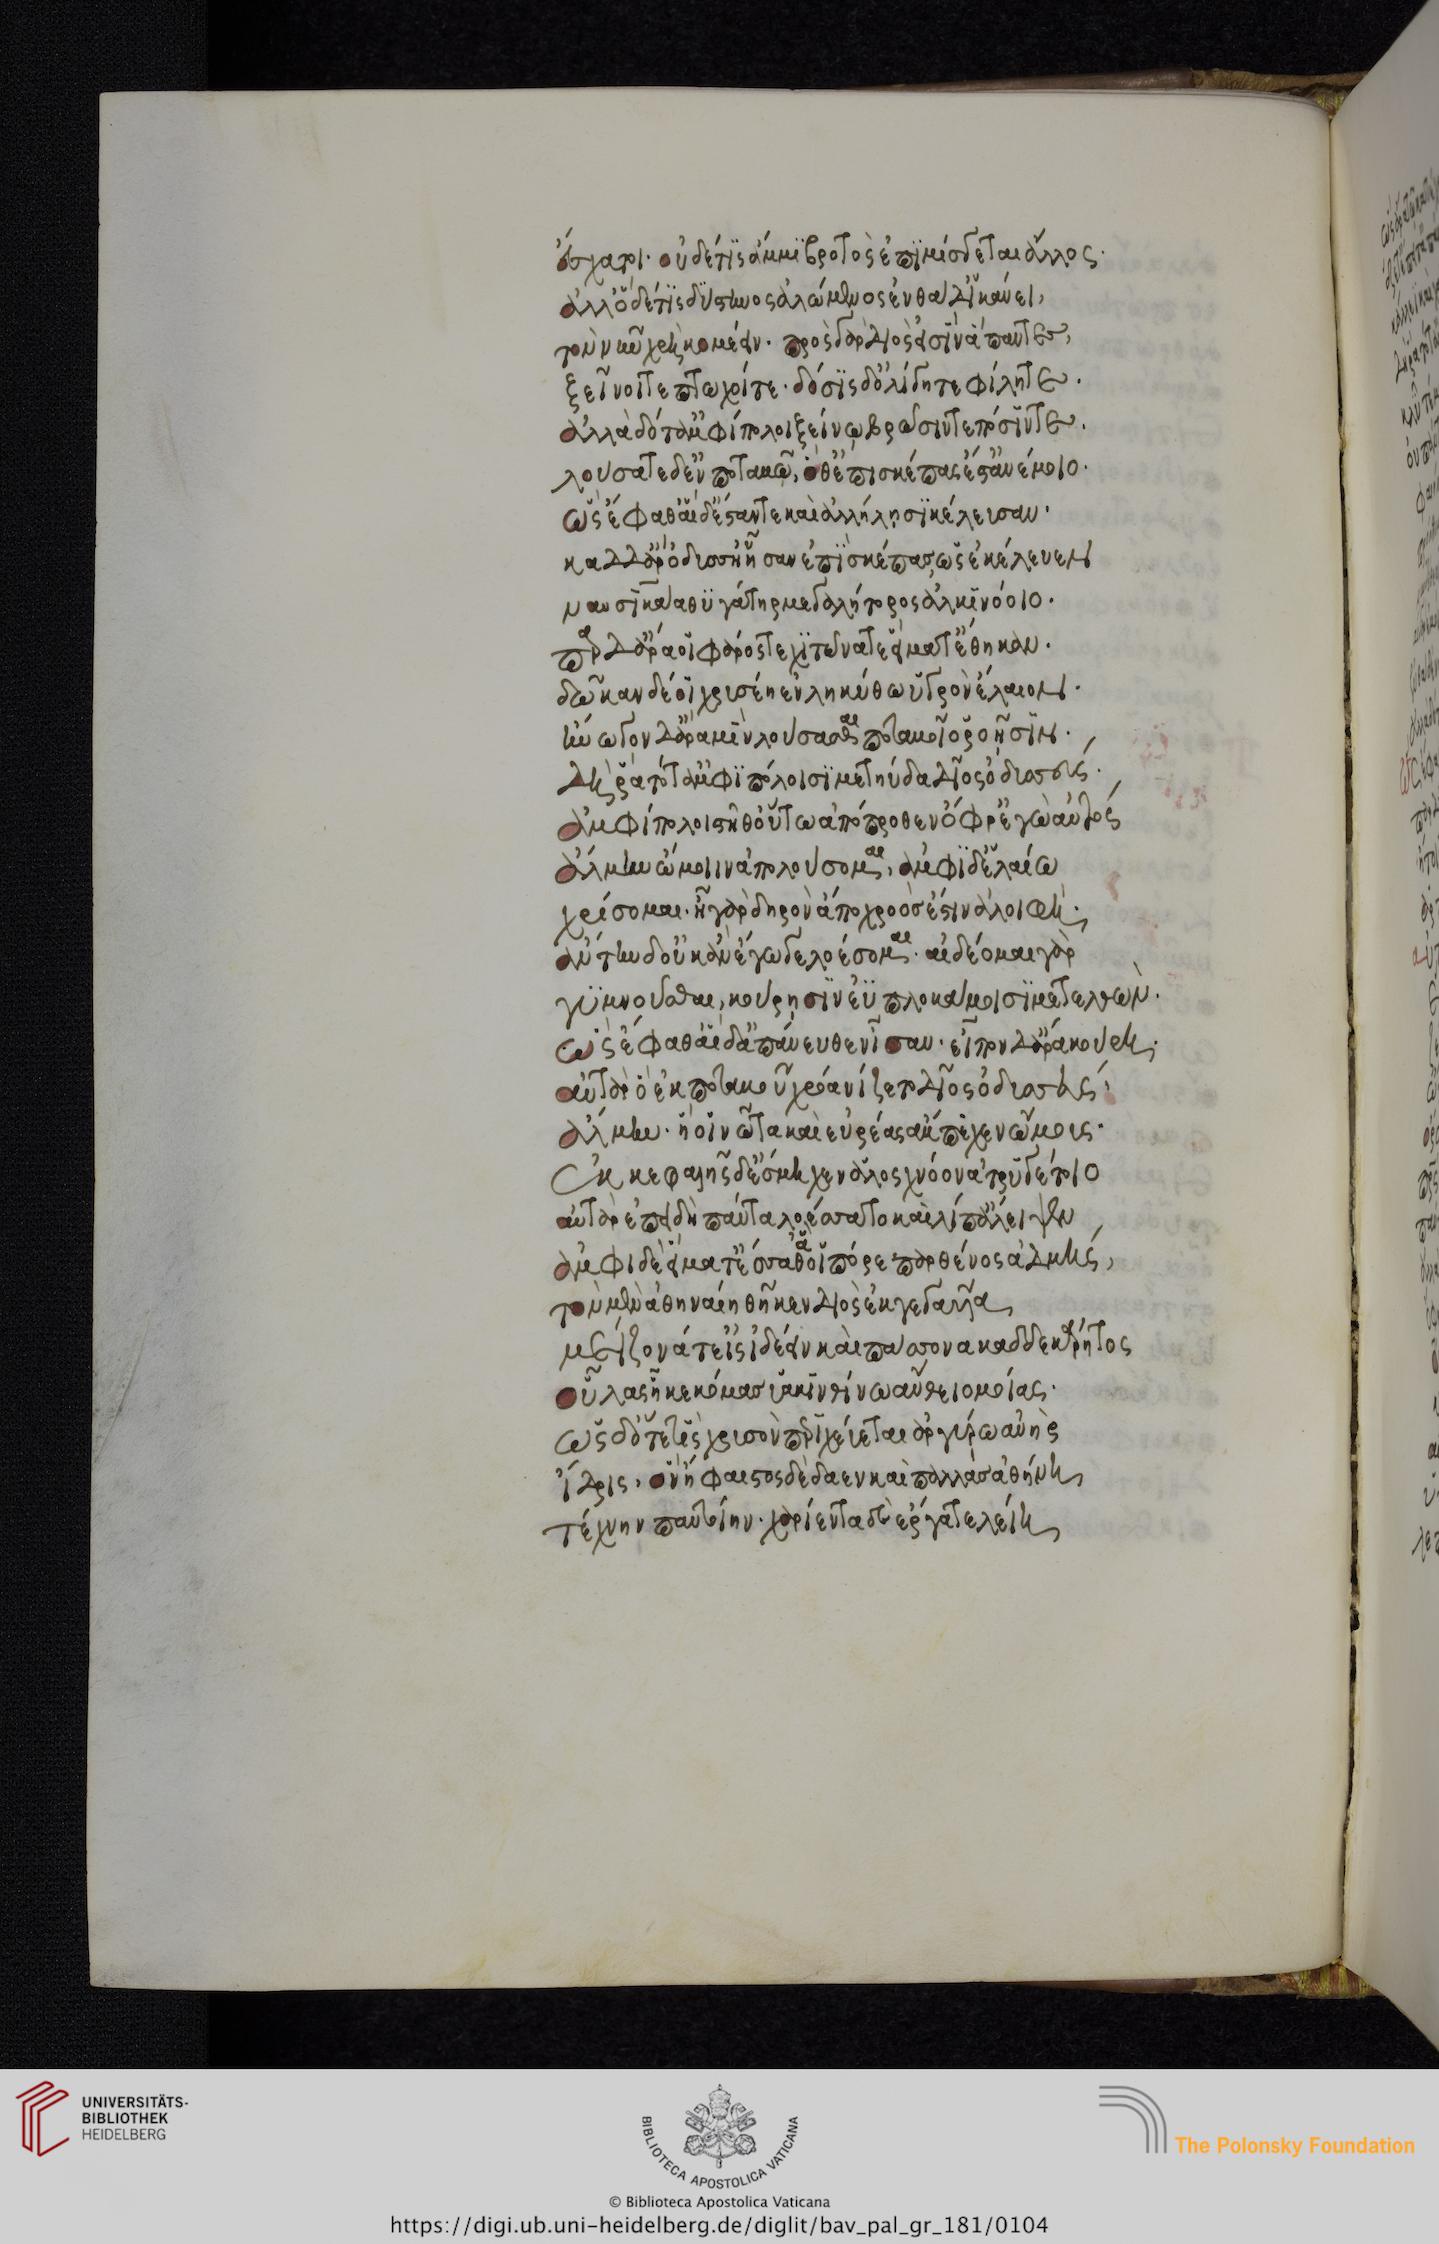 ἔσχατοι. οὐδέ τις ἄμμι βροτὸς ἐπιμίσγεται ἄλλος.
ἀλλ' ὅδε τις δύστηνος ἀλώμενος ἐνθάδ' ἱκάνει,
τὸν νῦν χρὴ κομέειν. πρὸς γὰρ Διὸς εἰσὶν ἅπαντες,
ξεῖνοί τε πτωχοί τε. δόσις δ' ὀλίγη τε φίλη τε.
ἀλλὰ δότ' ἀμφίπολοι ξείνῳ βρῶσίν τε πόσιν τε.
λούσατε δ' ἐν ποταμῷ, ὅθ' ἐπὶ σκέπας ἔστ' ἀνέμοιο.
ὣς ἔφαθ' αἱ δ' ἔσταν τε καὶ ἀλλήλῃσι κέλευσαν.
κὰδ δ' ἄρ' ὀδυσσῆ' εἷσαν ἐπὶ σκέπας, ὡς ἐκέλευεν
ναυσικάα θυγάτηρ μεγαλήτορος ἀλκινόοιο.
πὰρ δ' ἄρα οἱ φᾶρός τε χιτῶνά τε εἵματ' ἔθηκαν.
δῶκαν δέ οἱ χρυσέῃ ἐν ληκύθῳ ὑγρὸν ἔλαιον.
ἤνωγον δ' ἄρα μιν λούσασθαι ποταμοῖο ῥοῇσιν.
δή ῥα τότ' ἀμφιπόλοισι μετηύδα δῖος ὀδυσσεύς.
ἀμφίπολοι στῆθ' οὕτω ἀπόπροθεν ὄφρ' ἐγὼ αὐτὸς
ἅλμην ὤμοιιν ἀπολούσομαι, ἀμφὶ δ' ἐλαίῳ
χρίσομαι. ἦ γὰρ δηρὸν ἀπὸ χροός ἐστιν ἀλοιφή.
ἄντην δ' οὐκ ἂν ἐγώγε λοέσομαι. αἰδέομαι γὰρ
γυμνοῦσθαι, κούρῃσιν ἐϋπλοκάμοισι μετελθών.
ὣς ἔφαθ' αἱ δ' ἀπάνευθεν ἴσαν. εἶπον δ' ἄρα κούρῃ.
αὐτὰρ ὁ ἐκ ποταμοῦ χρόα νίζετο δῖος ὀδυσσεύς,
ἅλμην. ἥ οἱ νῶτα καὶ εὐρέας ἄμπεχεν ὤμους.
ἐκ κεφαλῆς δ' ἔσμηχεν ἁλὸς χνόον ἀτρυγέτοιο
αὐτὰρ ἐπειδὴ πάντα λοέσσατο καὶ λίπ' ἄλειψεν,
ἀμφὶ δὲ εἵματ' ἕσσαθ' ἅ οἱ πόρε παρθένος ἀδμής,
τὸν μὲν ἀθηναίη θῆκεν Διὸς ἐκγεγαυῖα,
μείζονά τ' εἰσιδέειν καὶ πάσσονα κὰδ δὲ κάρητος
οὔλας ἧκε κόμας ὑακινθίνῳ ἄνθει ὁμοίας.
ὡς δ' ὅτε τις χρυσὸν περιχεύεται ἀργύρῳ ἀνὴρ
ἴδρις, ὃν ἥφαιστος δέδαεν καὶ παλλὰς ἀθήνη,
τέχνην παντοίην. χαρίεντα δὲ ἔργα τελείει,
UNIVERSITÄTS-
BIBLIOTHEK
HEIDELBERG
BIBLIOTECA APOSTOLICA VATICANA
© Biblioteca Apostolica Vaticana
The Polonsky Foundation
https://digi.ub.uni-heidelberg.de/diglit/bav_pal_gr_181/0104